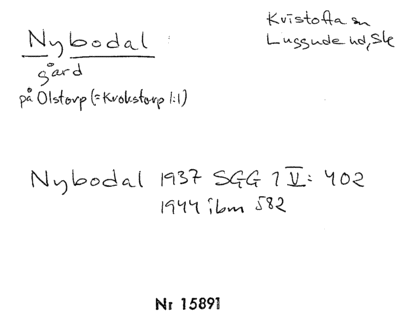 Nybodal
gård
på Olstorp (=Krokstorp 1:1)
Kvistofta sn
Luggude hd, Sk
Nybodal 1937 SGG 7 V: 402
1944 ibm 582
Nr 15891